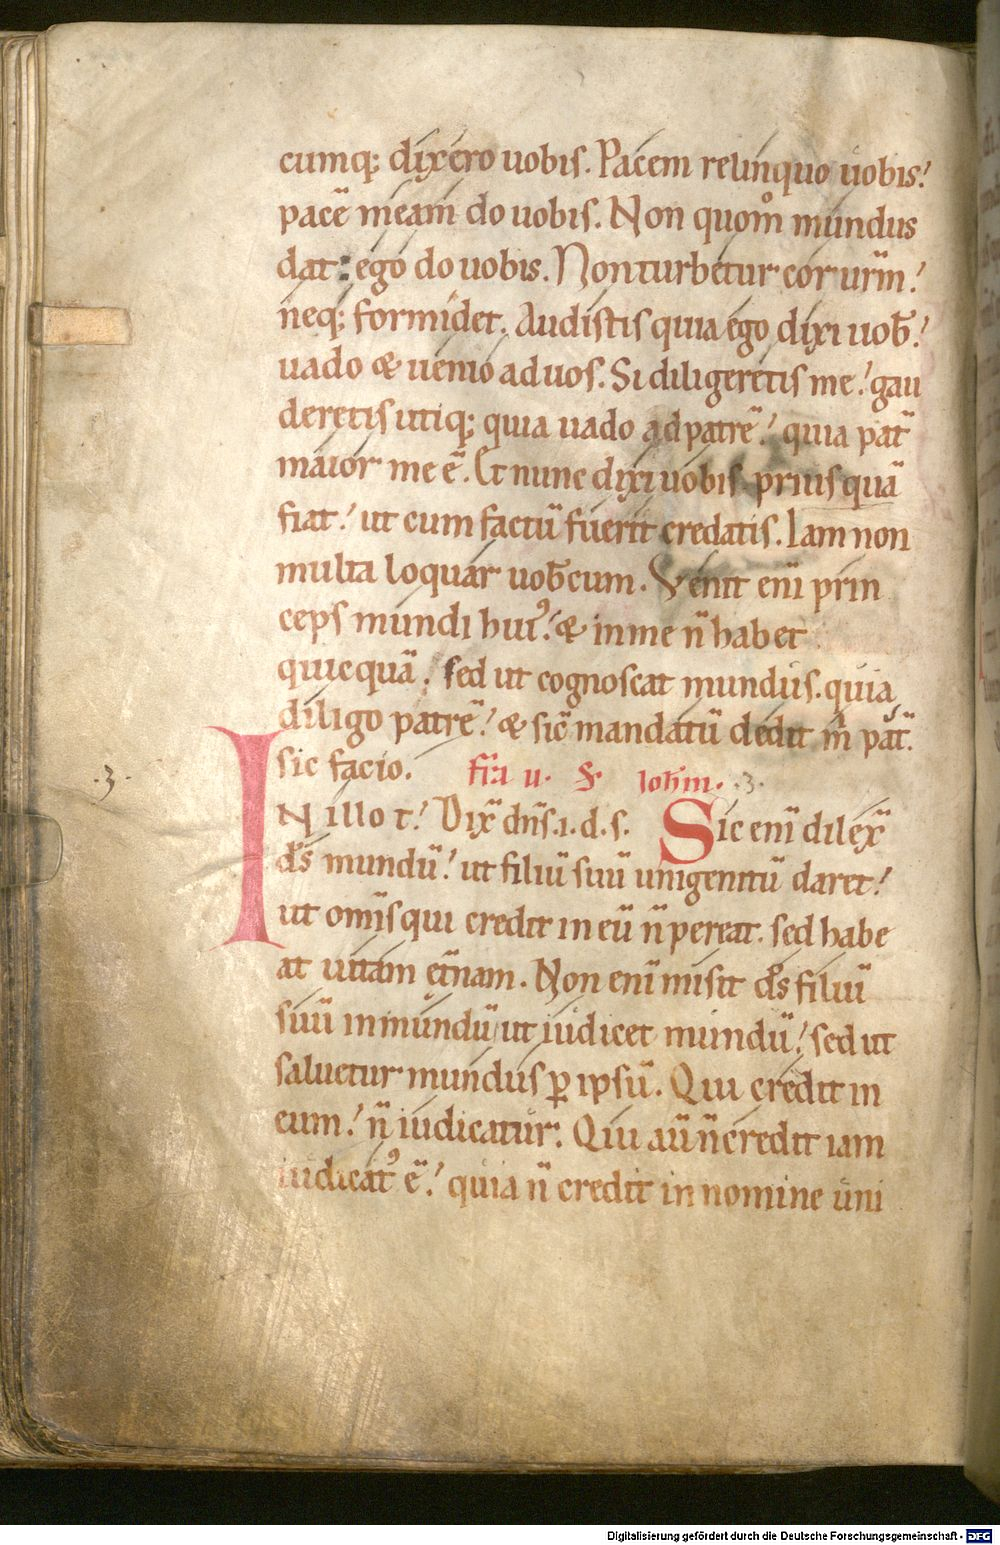 cumq; dixero uobis. Pacem relinquo uobis.
pacē meam do uobis. Non quom̊ mundus
dat: ego do uobis. Non turbetur cor urm̄.
neq; formidet. Audistis quia ego dixi uob̄.
uado & uenio ad uos. Si diligeretis me. gau
deretis utiq; quia uado ad patrē. quia pat̄
maior me ē. Et nunc dixi uobis priusquā
fiat. ut cum factū fuerit credatis. Iam non
multa loquar uob̄cum. Venit eni̅ prin
ceps mundi huiꝰ. & in me n̄ habet
quicquā. sed ut cognoscat mundus. quia
diligo patrē. & sic̄ mandatū dedit m̄ pat̄.
sic facio. fr̄a u. S. Ioh̄m. .3.
.3.
IN illo t. Dix̄ dn̄s .i. d. s. Sic eni̅ dilex̄
ds̄ mundū. ut filiū suū unigenitū daret.
ut omi̅s qui credit in eū n̄ pereat. sed habe
at uitam et̄nam. Non eni̅ misit ds̄ filiū
suū in mundū ut iudicet mundū. sed ut
saluetur mundus ꝑ ipsū. Qui credit in
eum. n̄ iudicatur. Qui aū n̄ credit iam
iudicatꝰ ē. quia n̄ credit in nomine uni
Digitalisierung gefördert durch die Deutsche Forschungsgemeinschaft - DFG